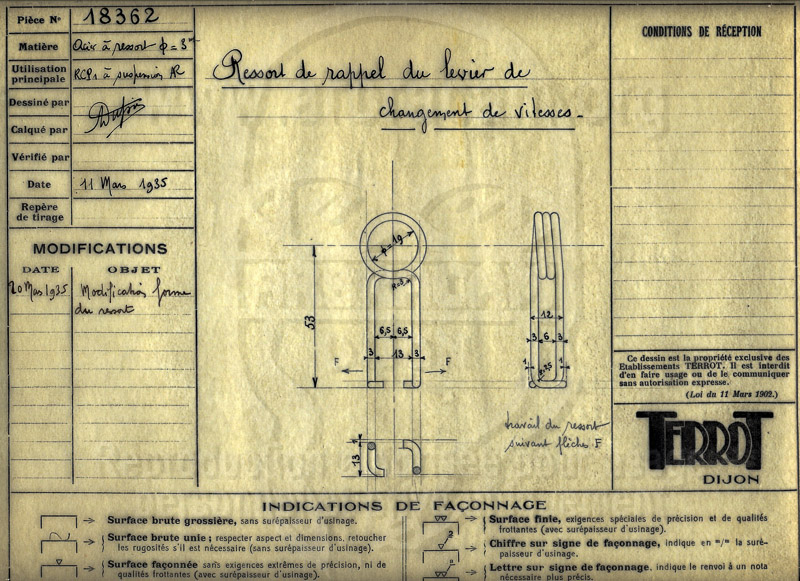 Pièce Nº 18362
Matière Acier à ressort φ = 3
Utilisation principale RCP1 à suspension AR
Dessiné par
Calqué par
Vérifié par
Date 11 Mars 1935
Repère de tirage
MODIFICATIONS
DATE OBJET
20 Mars 1935 Modification forme
du ressort
Ressort de rappel du levier de
changement de vitesses_
φ=19
53
6,5 6,5
3 13 3
F F
13
12
3 6 3
1 1
travail du ressort
suivant flèches F
CONDITIONS DE RÉCEPTION
Ce dessin est la propriété exclusive des
Etablissements TERROT. Il est interdit
d'en faire usage ou de le communiquer
sans autorisation expresse.
(Loi du 11 Mars 1902.)
TERROT
DIJON
INDICATIONS DE FAÇONNAGE
Surface brute grossière, sans surépaisseur d'usinage.
Surface brute unie; respecter aspect et dimensions, retoucher
les rugosités s'il est nécessaire (sans surépaisseur d'usinage).
Surface façonnée sans exigences extrêmes de précision, ni de
qualités frottantes (avec surépaisseur d'usinage).
Surface finie, exigences spéciales de précision et de qualités
frottantes (avec surépaisseur d'usinage).
Chiffre sur signe de façonnage, indique en "/" la suré-
paisseur d'usinage.
Lettre sur signe de façonnage, indique le renvoi à un nota
nécessaire plus précis.